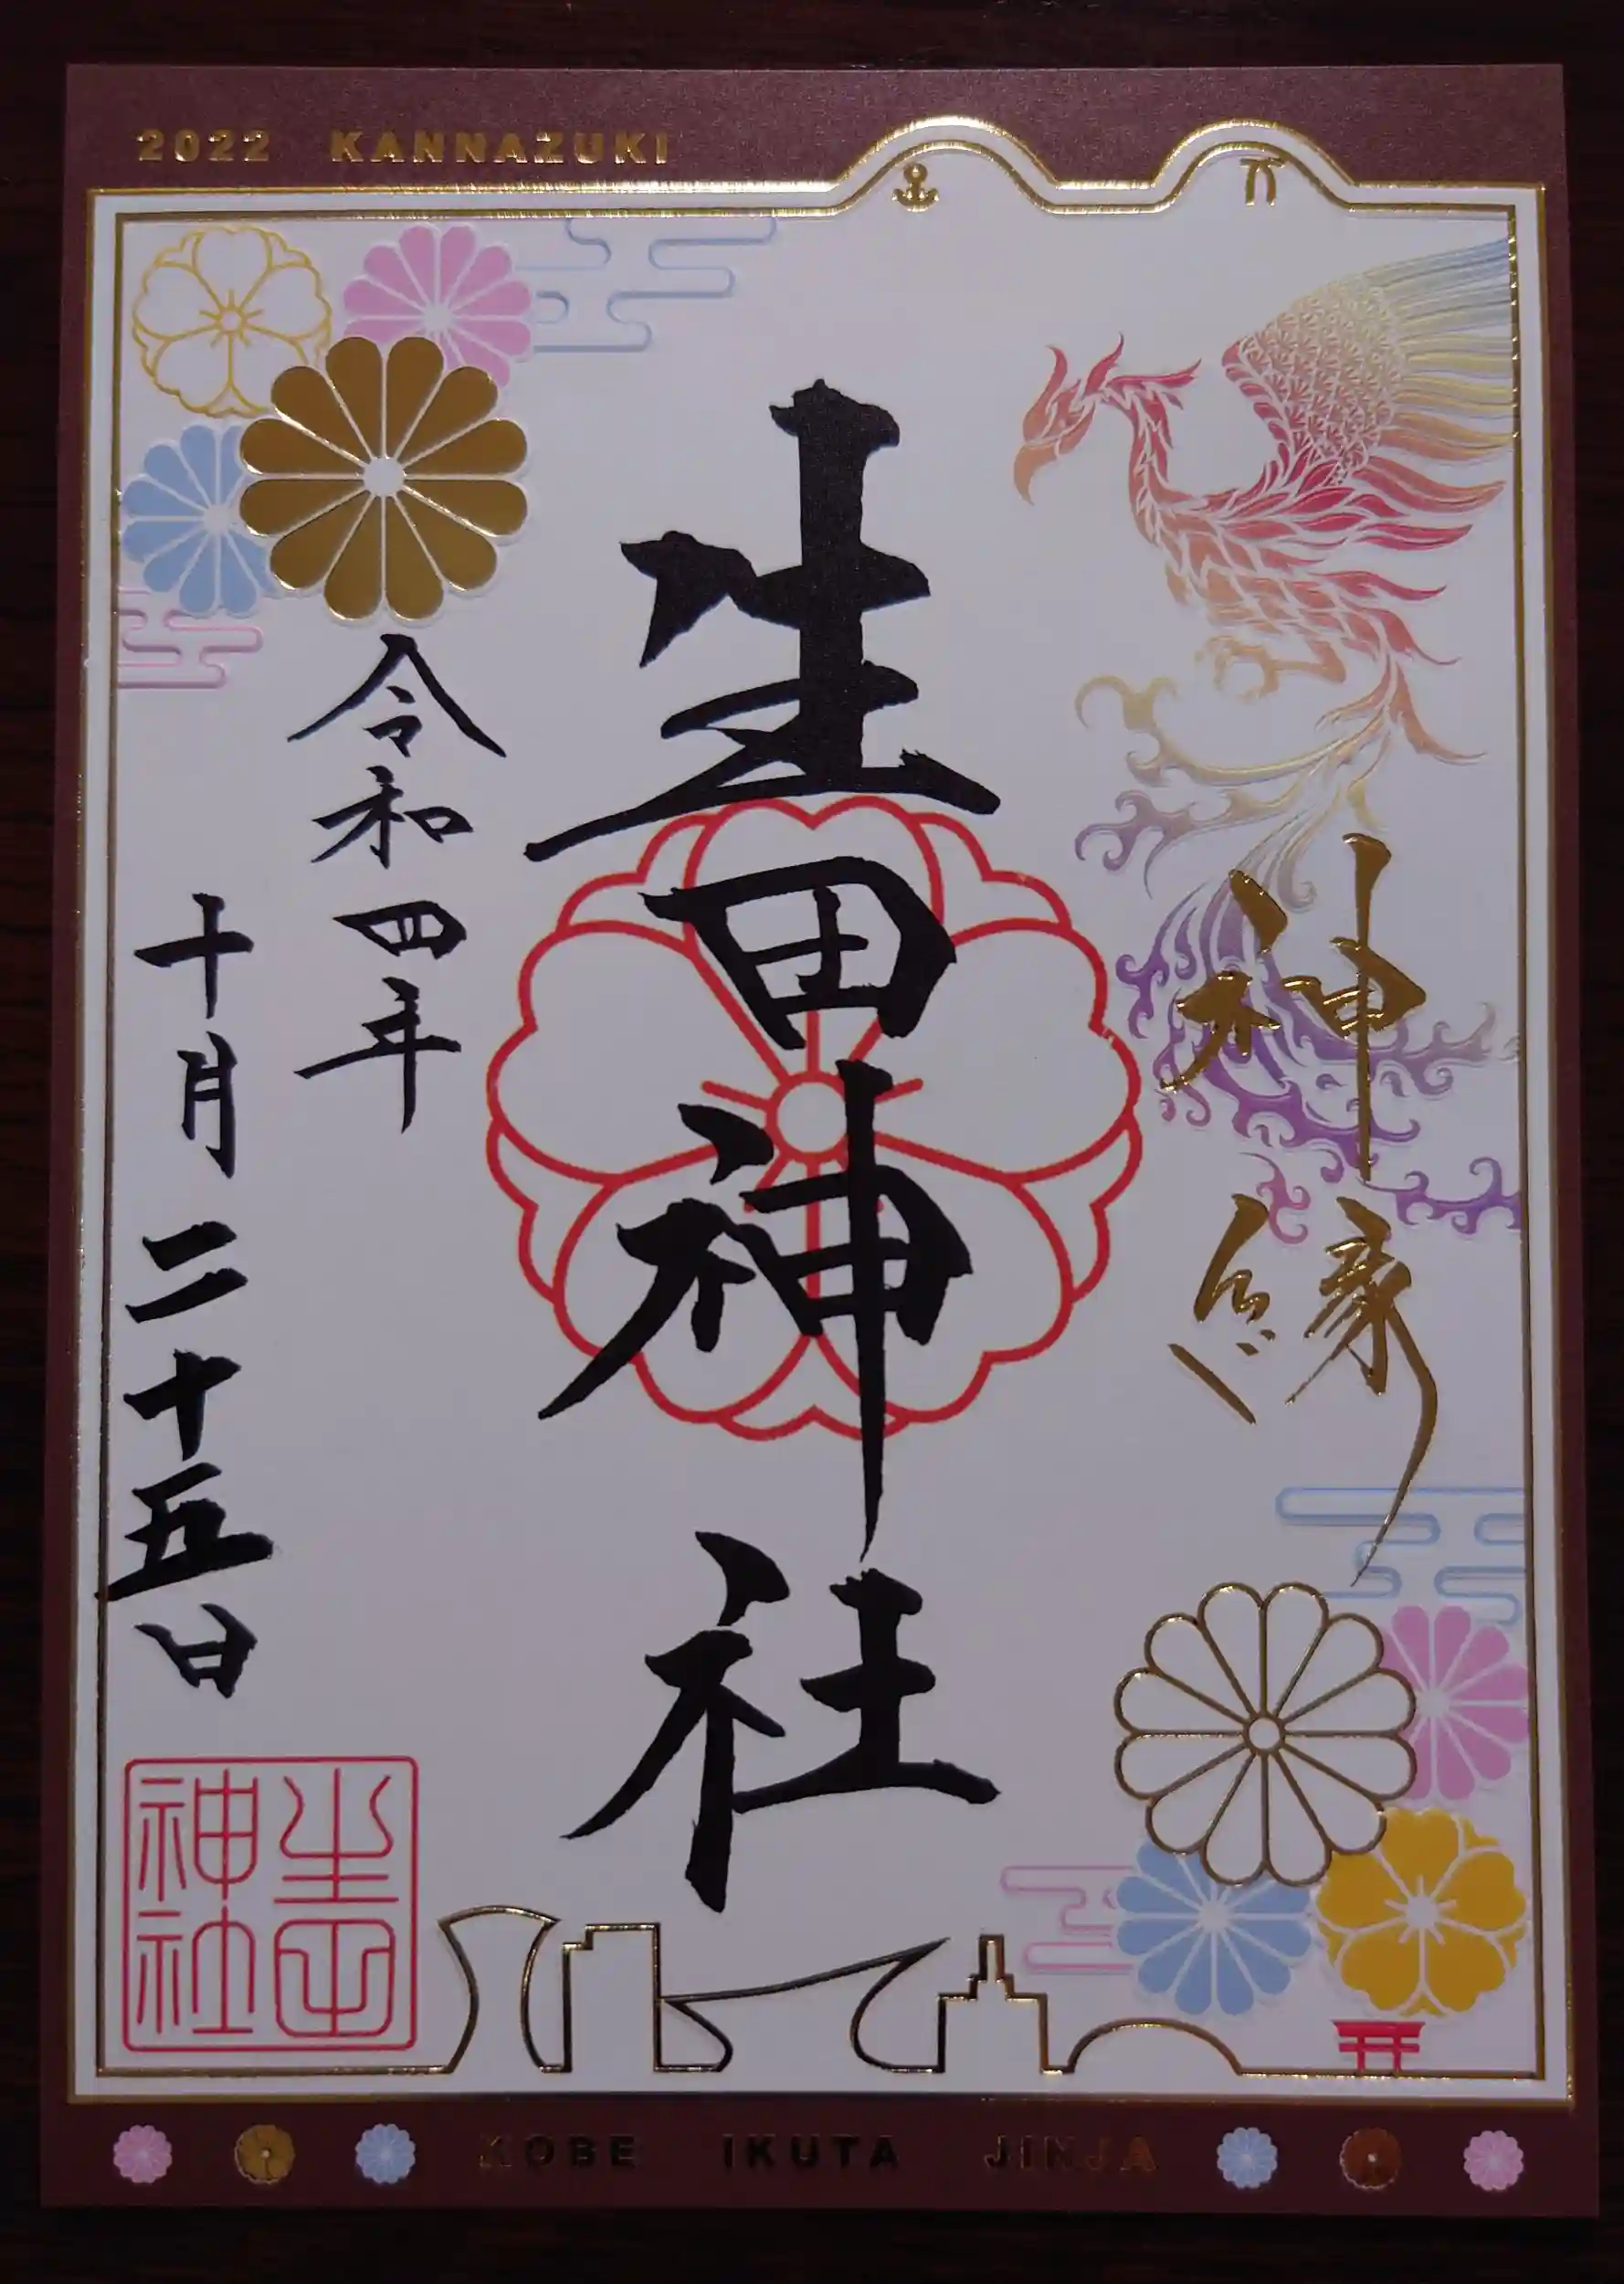 2022 KANNAZUKI
神縁
生田神社
令和四年
十月二十五日
生田
神社
KOBE IKUTA JINJA